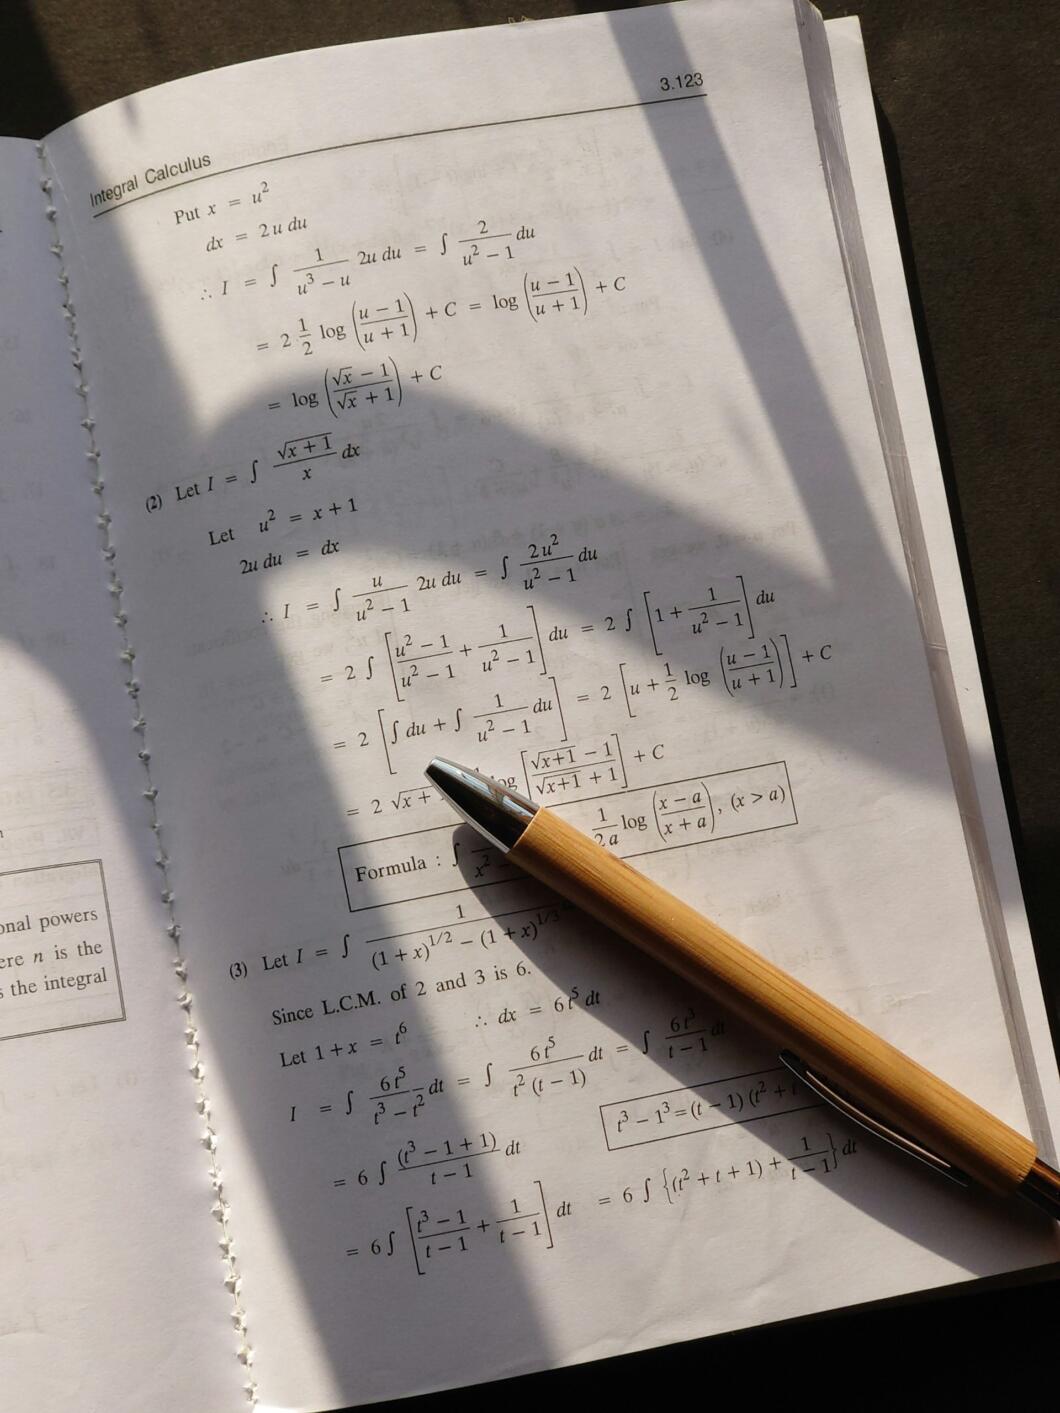 3.123
Integral Calculus
Put x = u²
dx = 2u du
∴ I = ∫ 1/(u³ − u) 2u du = ∫ 2/(u² − 1) du
= 2 1/2 log ((u − 1)/(u + 1)) + C = log ((u − 1)/(u + 1)) + C
= log ((√x − 1)/(√x + 1)) + C
(2) Let I = ∫ √(x + 1)/x dx
Let u² = x + 1
2u du = dx
∴ I = ∫ u/(u² − 1) 2u du = ∫ 2u²/(u² − 1) du
= 2 ∫ [(u² − 1)/(u² − 1) + 1/(u² − 1)] du = 2 ∫ [1 + 1/(u² − 1)] du
= 2 [∫ du + ∫ 1/(u² − 1) du] = 2 [u + 1/2 log ((u − 1)/(u + 1))] + C
= 2 √x + log [(√(x+1) − 1)/(√(x+1) + 1)] + C
Formula : ∫ x² 1/(2a) log ((x − a)/(x + a)), (x > a)
(3) Let I = ∫ 1/((1 + x)^1/2 − (1 + x)^1/3)
Since L.C.M. of 2 and 3 is 6.
Let 1 + x = t⁶ ∴ dx = 6t⁵ dt
I = ∫ 6t⁵/(t³ − t²) dt = ∫ 6t⁵/(t² (t − 1)) dt = ∫ 6t³/(t − 1) dt
t³ − 1³ = (t − 1) (t² + t
= 6 ∫ (t³ − 1 + 1)/(t − 1) dt
= 6 ∫ [(t³ − 1)/(t − 1) + 1/(t − 1)] dt = 6 ∫ {(t² + t + 1) + 1/(t − 1)} dt
onal powers
ere n is the
s the integral